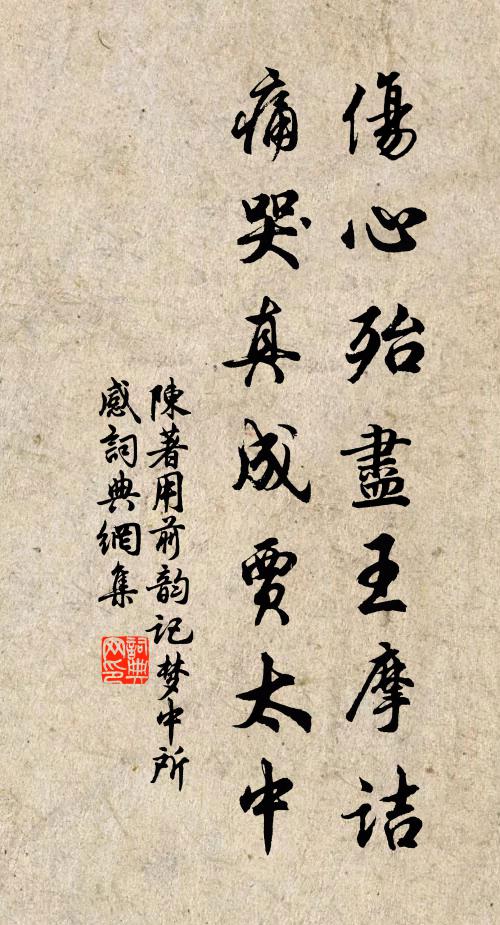 傷心殆盡王摩詰
痛哭真成賈太中
陳著用前韵記梦中所
感詞典網集
詞典网印